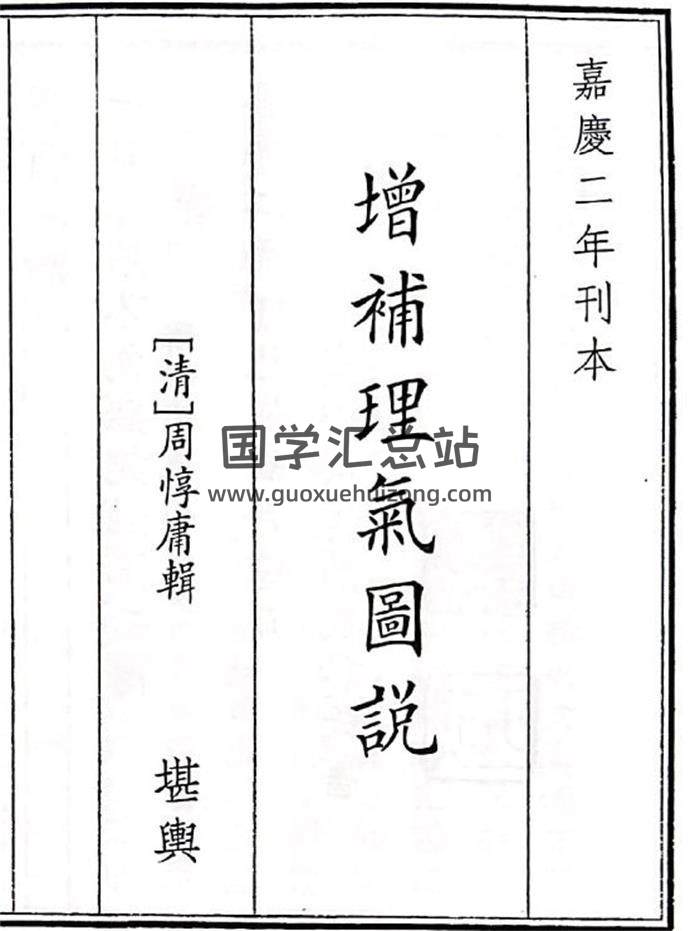 嘉慶二年刊本
增補理氣圖説
[清]周惇庸輯
堪輿
国学汇总站
www.guoxuehuizong.com